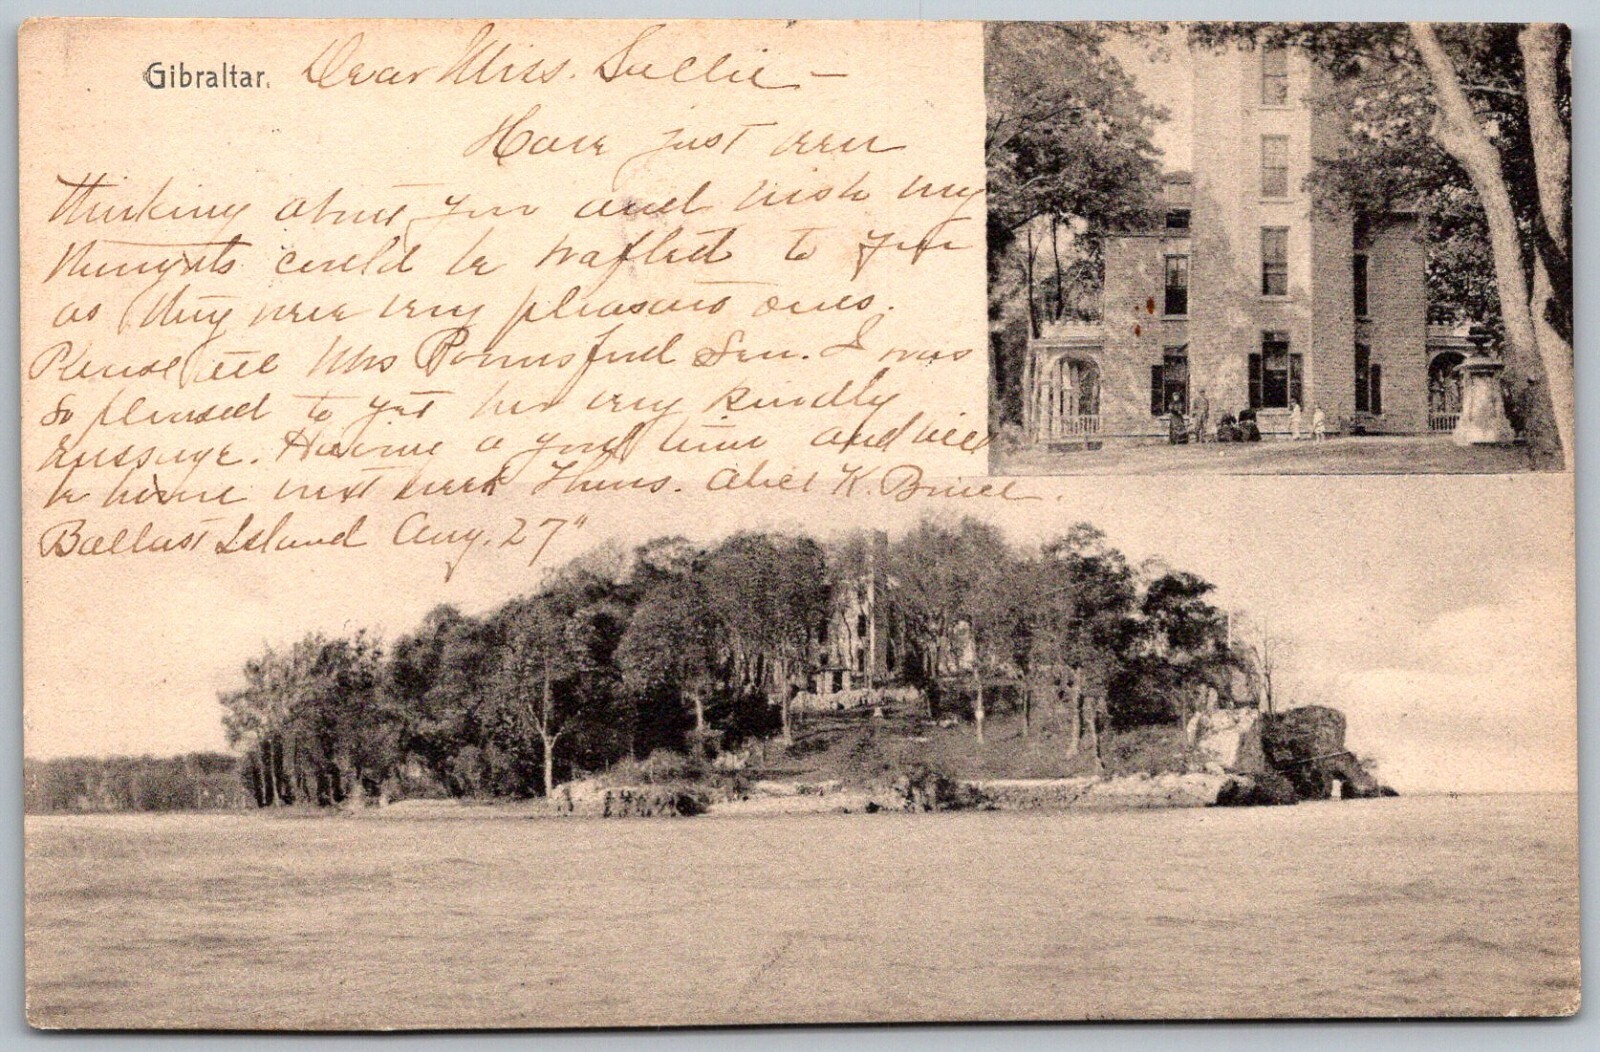 Gibraltar.
Dear Miss. Sallie —
Have just been
thinking about you and wish my
thoughts could be wafted to you
as they were very pleasant ones.
Please tell Mrs Pomsford Sen. I was
so pleased to get her very kindly
message. Having a good time and will
be home next week Thurs. Alice K. Bruce.
Ballast Island Aug. 27"